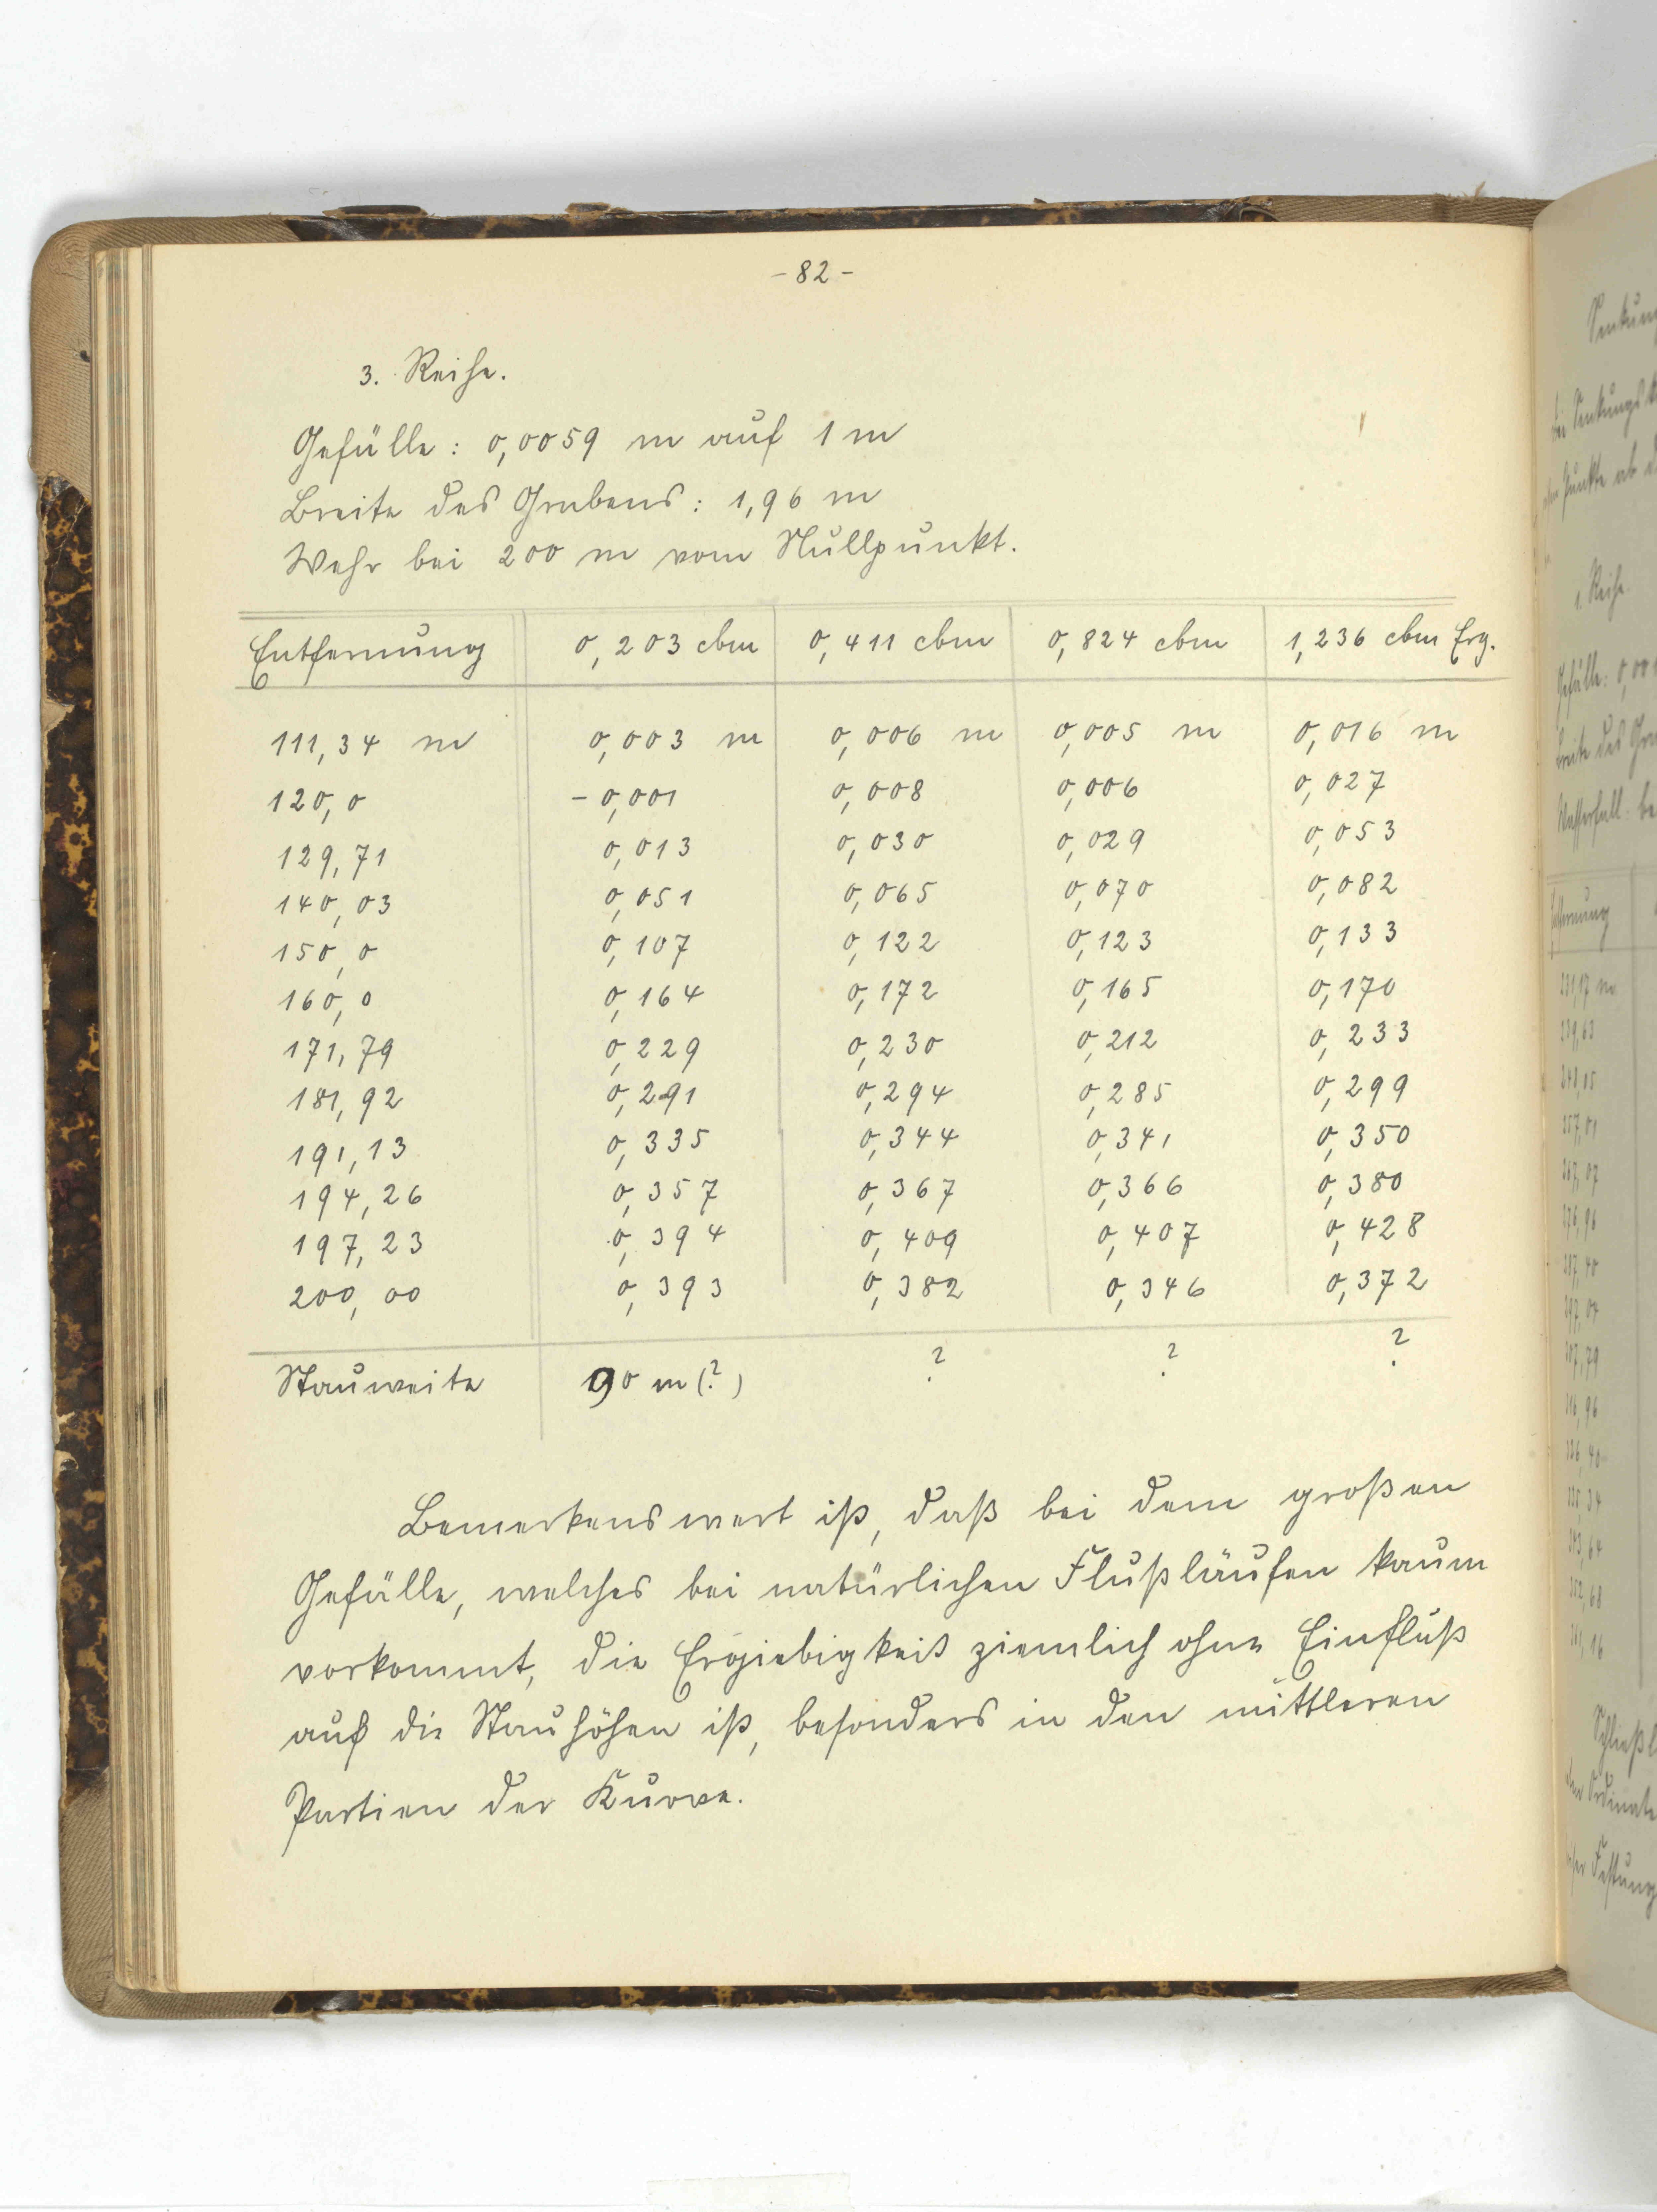 - 82 -
3. Reihe.
Gefälle: 0,0059 m auf 1 m
Breite des Grabens: 1,96 m
Wehr bei 200 m vom Nullpunkt.
Entfernung 0,203 cbm 0,411 cbm 0,824 cbm 1,236 cbm Erg.
111,34 m 0,003 m 0,006 m 0,005 m 0,016 m
120,0 - 0,001 0,008 0,006 0,027
129,71 0,013 0,030 0,029 0,053
140,03 0,051 0,065 0,070 0,082
150,0 0,107 0,122 0,123 0,133
160,0 0,164 0,172 0,165 0,170
171,79 0,229 0,230 0,212 0,233
181,92 0,291 0,294 0,285 0,299
191,13 0,335 0,344 0,341 0,350
194,26 0,357 0,367 0,366 0,380
197,23 0,394 0,409 0,407 0,428
200,00 0,393 0,382 0,346 0,372
Stauweite 90 m (?) ? ? ?
Bemerkenswert ist, daß bei dem großen
Gefälle, welches bei natürlichen Flußläufen kaum
vorkommt, die Ergiebigkeit ziemlich ohne Einfluß
auf die Stauhöhen ist, besonders in den mittleren
Partien der Kurve.